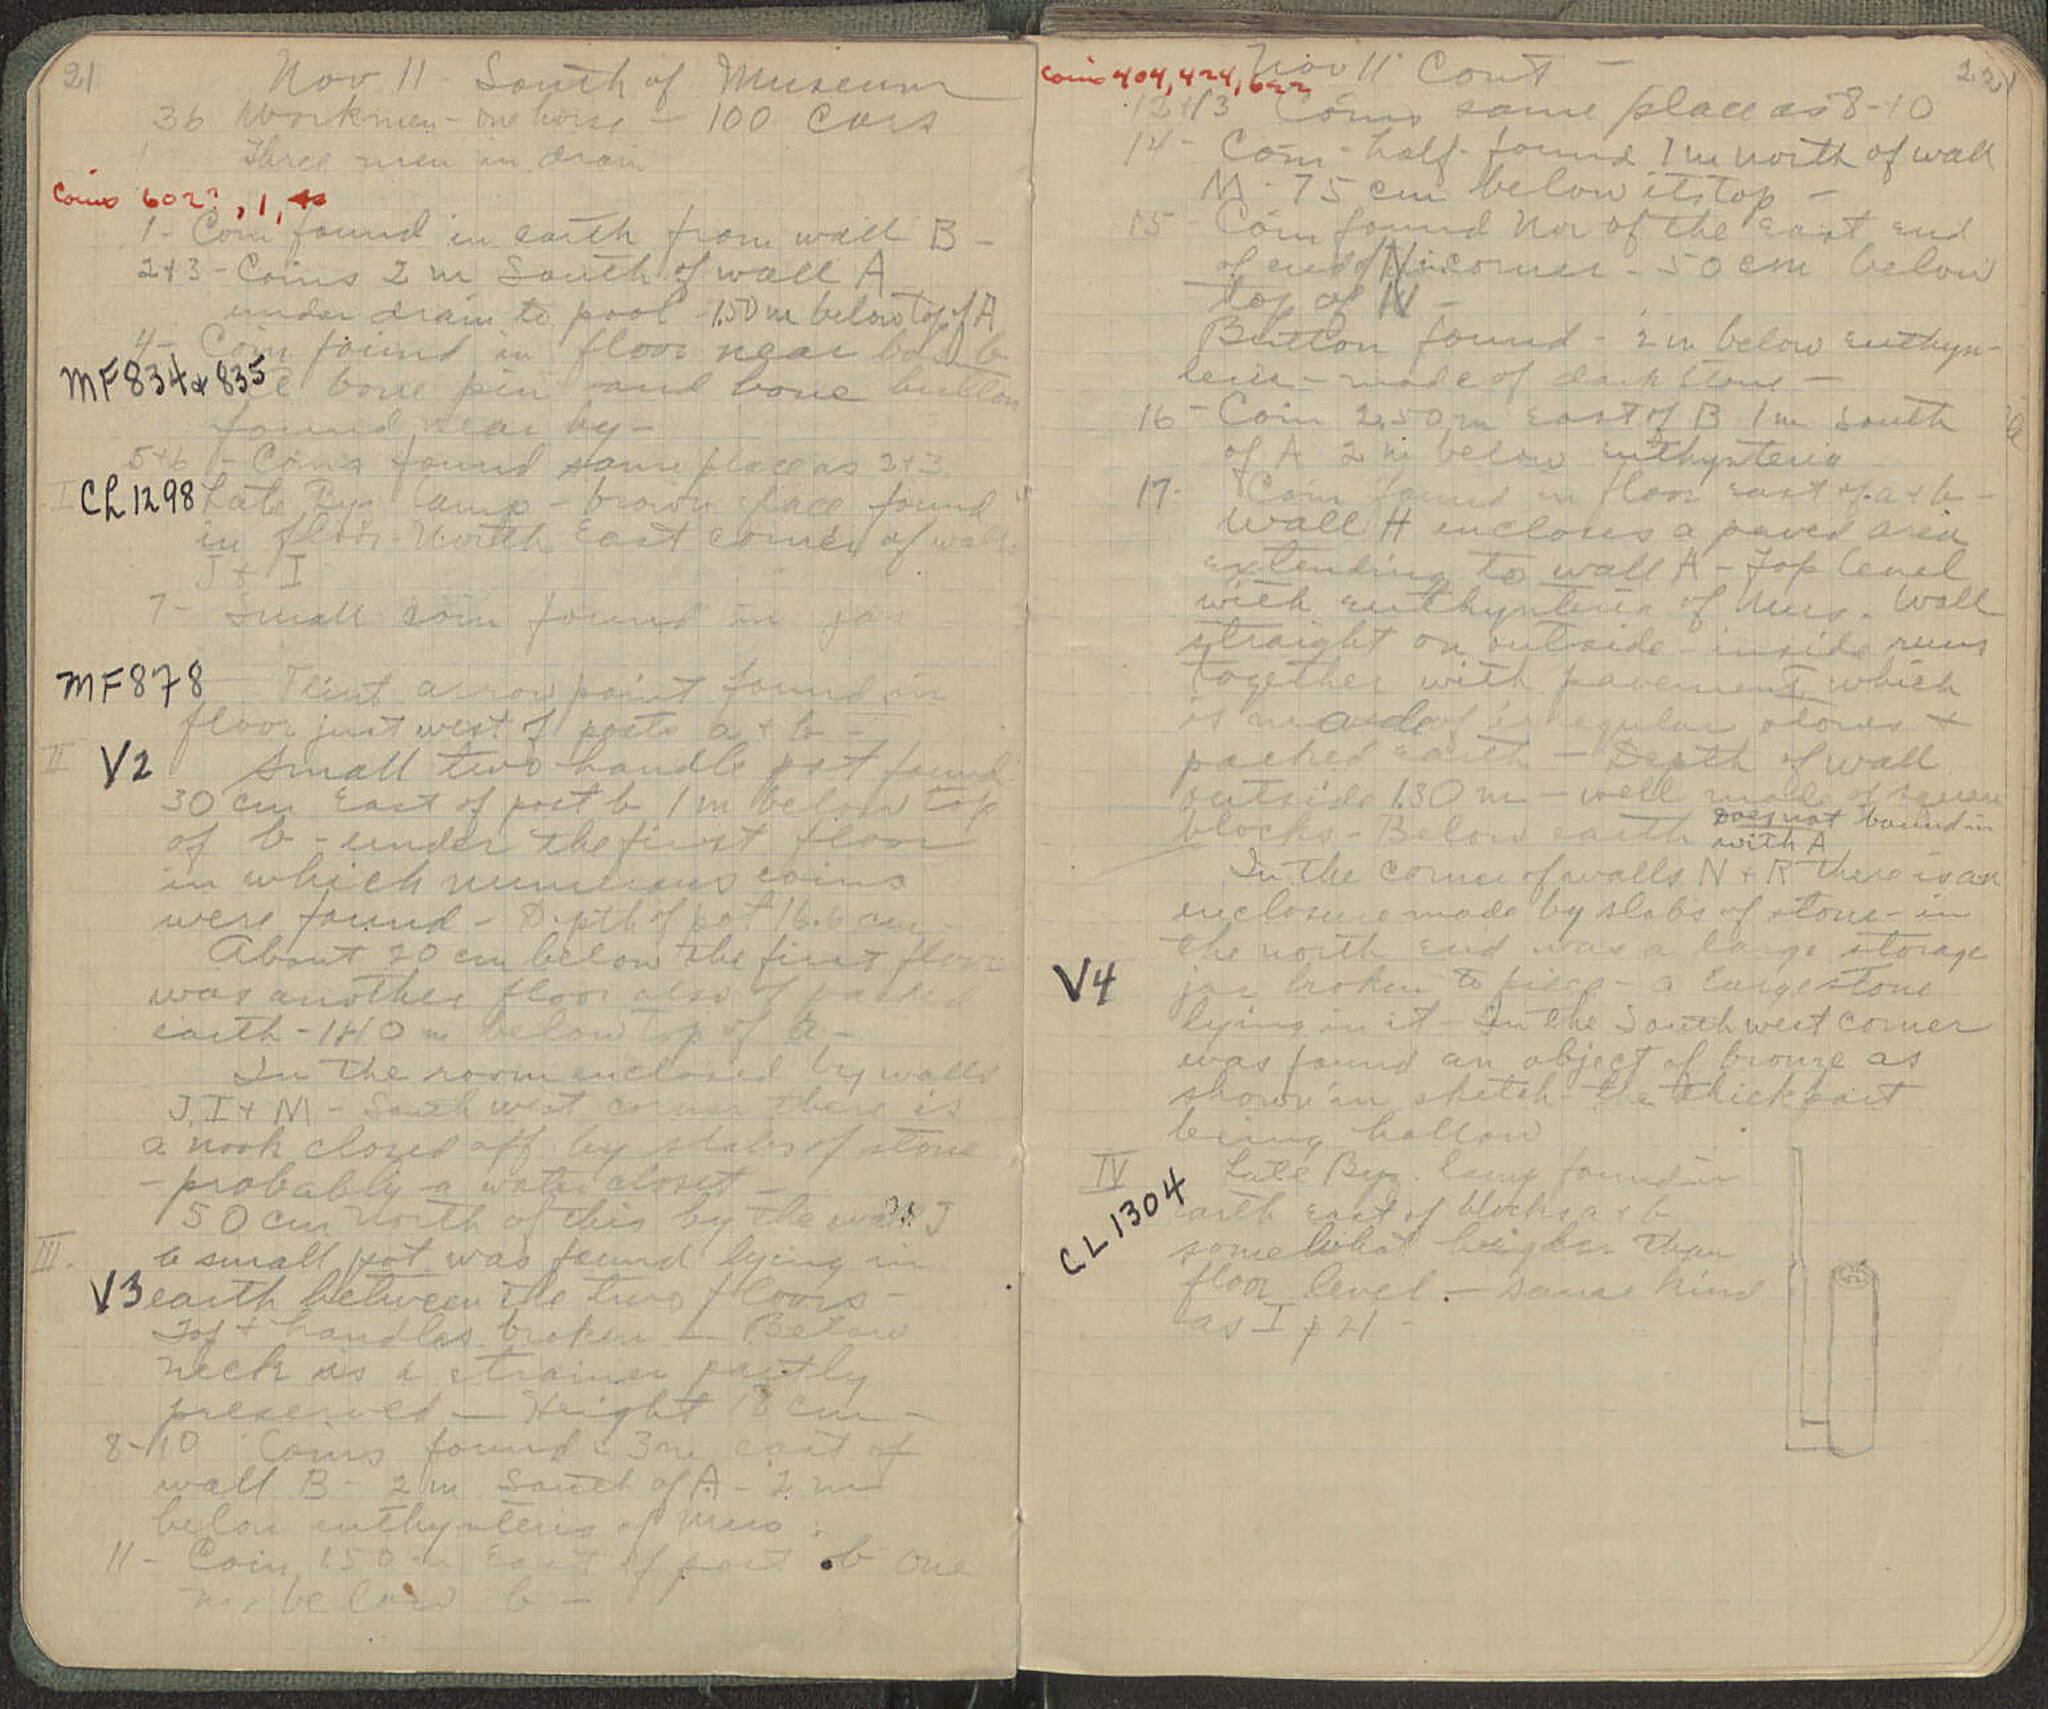 21
Nov 11 - South of Museum
36 Workmen - one horse - 100 cars
Three men in drain
Coins 602?, 1,
1 - Coin found in earth from wall B -
2+3 - Coins 2 m South of wall A
under drain to pool - 1.50 m below top of A
4 - Coin found in floor near b
MF834 & 835
bone pin and bone button
found near by -
5+6 - Coins found same place as 2+3
I CL1298 Late Byz lamp - brown glaze found
in floor - North East corner of walls
J + I
7 - Small coin found in jar
MF878
Flint arrow point found in
floor just west of posts a + b -
II V2 Small two handle pot found
30 cm East of post b 1 m below top
of b - under the first floor
in which numerous coins
were found - Depth of pot 16.6 cm -
About 20 cm below the first floor
was another floor also of packed
earth - 1.40 m below top of a -
In the room enclosed by walls
J, I + M - South west corner there is
a nook closed off by slabs of stone,
- probably a water closet -
50 cm North of this by the wall J
III. a small pot was found lying in
V3 earth between the two floors -
Top + handles broken - Below
neck is a strainer partly
preserved - Height 18 cm -
8-10 Coins found - 3 m east of
wall B - 2 m South of A - 2 m
below euthynteria of Mus.
11 - Coin 1.50 m East of post b one
m. below b -
Coins 404, 424, 622
Nov 11 Cont -
22
12+13 Coins same place as 8-10
14 - Coin - half - found 1 m north of wall
M - 75 cm below its top -
15 - Coin found Nor of the East end
of end of N in corner - 50 cm below
top of N -
Button found - 2 m below euthyn-
teria - made of dark stone -
16 - Coin 2.50 m East of B 1 m South
of A 2 m below euthynteria
17 - Coin found in floor East of a + b -
Wall H encloses a paved area
extending to wall A - Top level
with euthynteria of Mus. Wall
straight on outside - inside runs
together with pavement which
is made of irregular stones +
packed earth - Depth of wall
outside 1.30 m - well made of square
blocks - Below earth Does not bound in
with A
In the corner of walls N + R there is an
enclosure made by slabs of stone - in
the north end was a large storage
V4 jar broken to pieces - a large stone
lying in it - In the South west corner
was found an object of bronze as
shown in sketch - the thick part
being hollow
IV Late Byz. lamp found in
CL1304
earth East of blocks a + b
somewhat heigher than
floor level. - Same kind
as I p 21 -